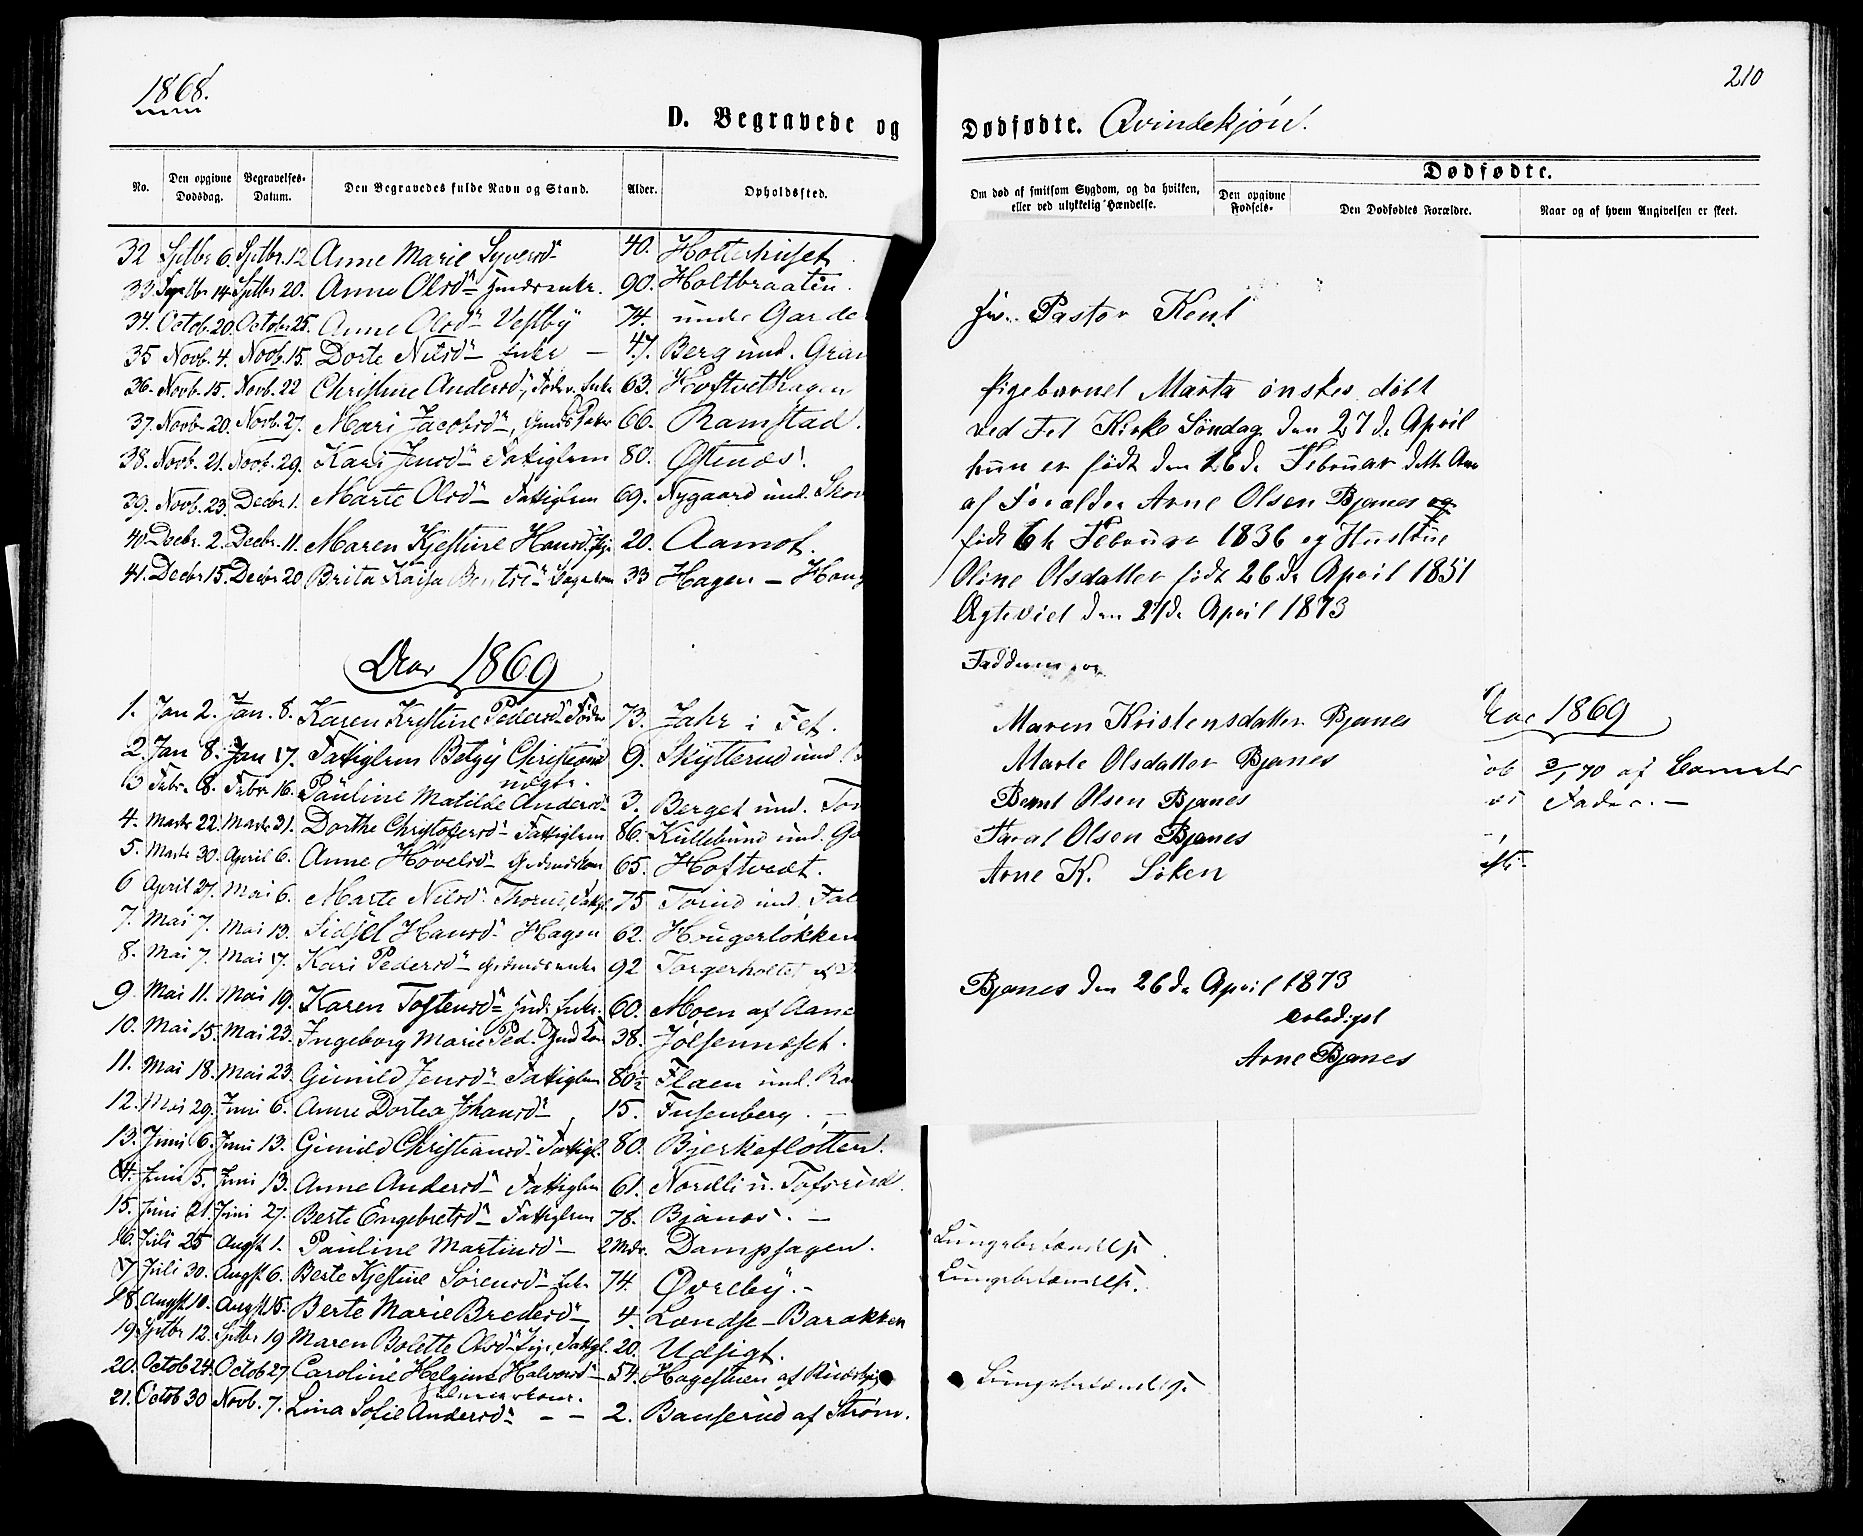 1868.
210
D. Begravede og Dødfødte. Qvindekjön.
No.
Den opgivne Dødsdag.
Begravelses-Datum.
Den Begravedes fulde Navn og Stand.
Alder.
Opholdssted.
Om død af smitsom Sygdom, og da hvilken, eller ved ulykkelig Hændelse.
Dødfødte.
Den opgivne Fødsels-
Den Dødfødtes Forældre.
Naar og af hvem Angivelsen er skeet.
32 Septbr 6. Septbr. 12 Anne Marie Syversd. 40. Holterhuset
33. Septbr 14. Septbr 20. Anne Olsd. 90. Holtbraaten.
34. Octob. 20. October 25. Anne Olsd. Vestby 74. under Garde
35 Novb. 4. Novb. 15. Dorte Nilsd. Enke 47. Berg und.
36. Novb. 15. Novb. 22 Christine Andersd. 63. Hostvethagen
37. Novb. 20. Novb. 27. Mari Jacobsd. 66. Ramstad.
38. Novb. 21. Novb. 29. Kari Jensd. Fattiglem 80. Østenes.
39. Novb. 23. Decbr. 1. Marte Olsd. Fattiglem 69. Nygaard und.
40. Decbr. 2. Decbr. 11. Maren Kjestine Hansd. Pige 20. Aamot.
41. Decbr 15. Decbr 20 Brita Kaisa 33 Hagen –
Aar 1869
1. Jan 2. Jan. 8. Karen Kristine Pedersd. 73. Jahr i Fet.
2. Jan 8. Jan 17. Fattiglem Betzy 9. Skytterud und
3 Febr. 8. Febr. 16. Pauline Matilde Andersd. 3. Berget und.
4. Marts 22. Marts 31. Dorthe Christofersd. Fattiglem 86. Kullebund und.
5. Marts 30. April 6. Anne Hovelsd. 65. Hoftvedt.
6 April 27. Mai 6. Marte Nilsd. 75 und.
7. Mai 7. Mai 13. Sidsel Hansd. Hagen 62. Haugerløkken
8. Mai 7. Mai 17. Kari Pedersd. 92 Torgerholtet
9. Mai 11. Mai 19. Karen Tostensd. 60. Moen af
10. Mai 15. Mai 23. Ingeborg Marie Ped. 38. Jølsenneset.
11. Mai 18. Mai 23. Gunild Jensd. Fattiglem 80½ Flaen und.
12. Mai 29. Juni 6. Anne Dortea Johansd. 15. Fusenberg. –
13. Juni 6. Juni 13. Gunild Christiansd. Fattigl. 80. Bjerkefløtten.
14. Juni 5. Juni 13. Anne Andersd. Fattiglem 61. Nordli u. Tofsrud.
15. Juni 21. Juni 27. Berte Engebretsd. Fattiglem 78. Bjanes. –
16. Juli 25 Augst 1. Pauline Martinsd. – 2 Mdr. Dampsagen. Lungebetændelse
17 Juli 30. Augst. 6. Berte Kjestine Sørensd. Enke 74. Øvreby. – Lungebetændelse.
18. Augst. 10. Augst 15. Berte Marie Bredesd. 4. Londse-Barakken
19. Septbr 12. Septbr 19 Maren Bolette Olsd. Pige, Fattigl. 20. Udsigt.
20. Octob 24. Octob 27. Caroline Helgine Halvorsd. – 54. Hagestuen af Lungebetændelse
21. Octob 30 Novb. 7. Lina Sofie Andersd. – – 2. Banserud af Strøm.
Hr. Pastor Kent
Pigebarnet Marta ønskes døbt
ved Fet Kirke Søndag den 27de April
hun er født den 16de Februar dette Aar
af Foralder Arne Olsen Bjanes og
født 6te Februar 1836 og Hustrue
Oline Olsdatter født 26de April 1851
Ægteviet den 27de April 1873
Fadderne
Maren Kristensdatter Bjanes
Marte Olsdatter Bjanes
Bernt Olsen Bjanes
Olsen Bjanes
Arne K.
Bjanes den 26de April 1873
Ærbødigst
Arne Bjanes
Aar 1869
3/1 70 af
Fader. –